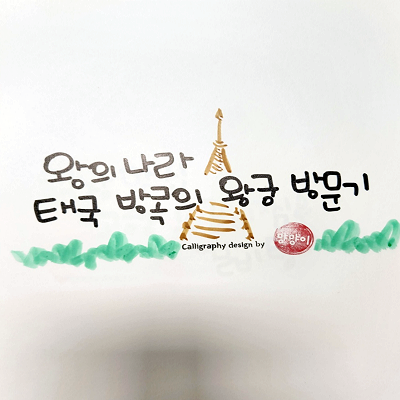 왕의 나라
태국 방콕의 왕궁 방문기
Calligraphy design by
맘맘이